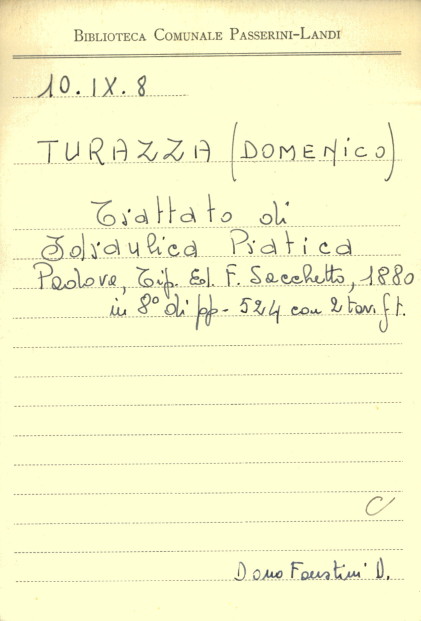 BIBLIOTECA COMUNALE PASSERINI-LANDI
10. IX. 8
TURAZZA (DOMENICO)
Trattato di
Idraulica Pratica
Padova, Tip. Ed. F. Sacchetto, 1880
in 8° di pp. 524 con 2 tav. f. t.
C
Dono Faustini D.